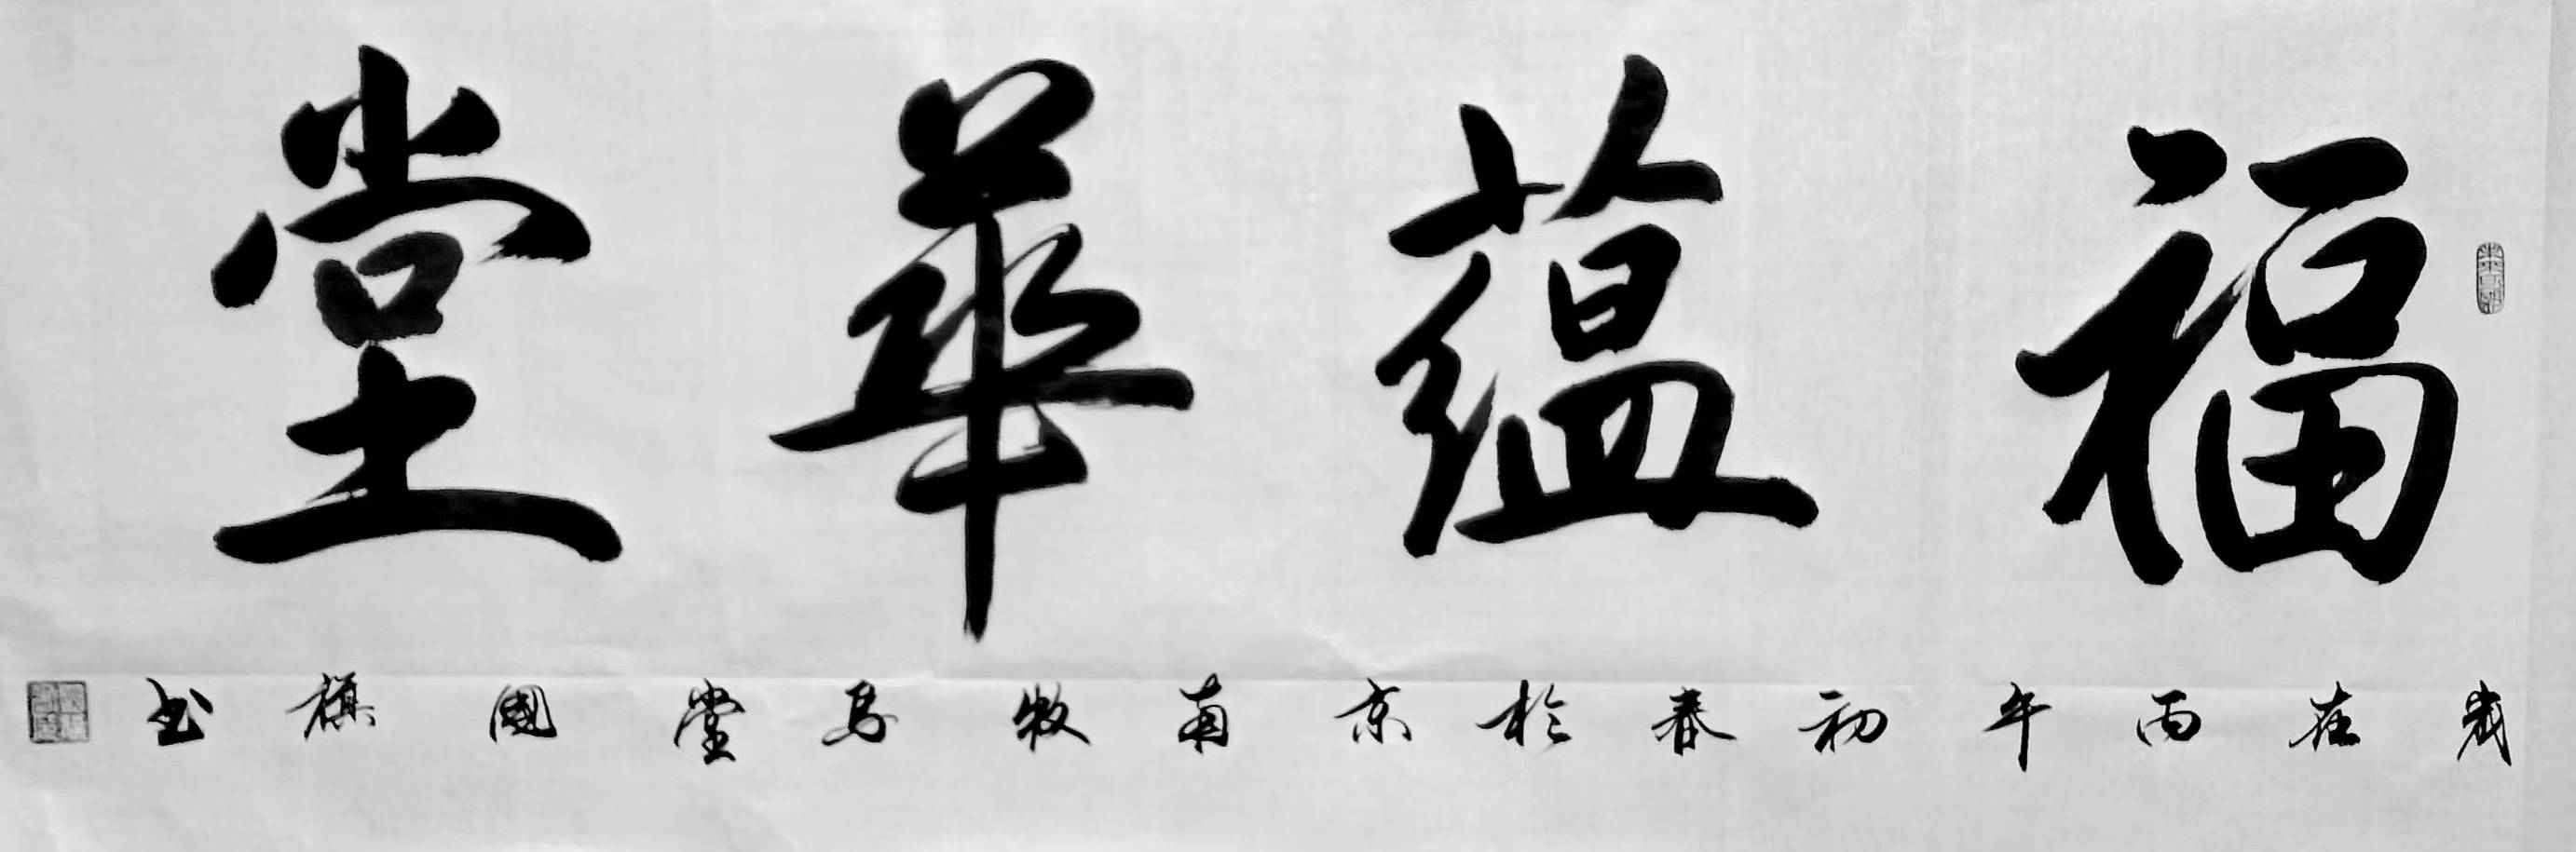 福蘊華堂
歲在丙午初春於京南牧馬堂國旗书